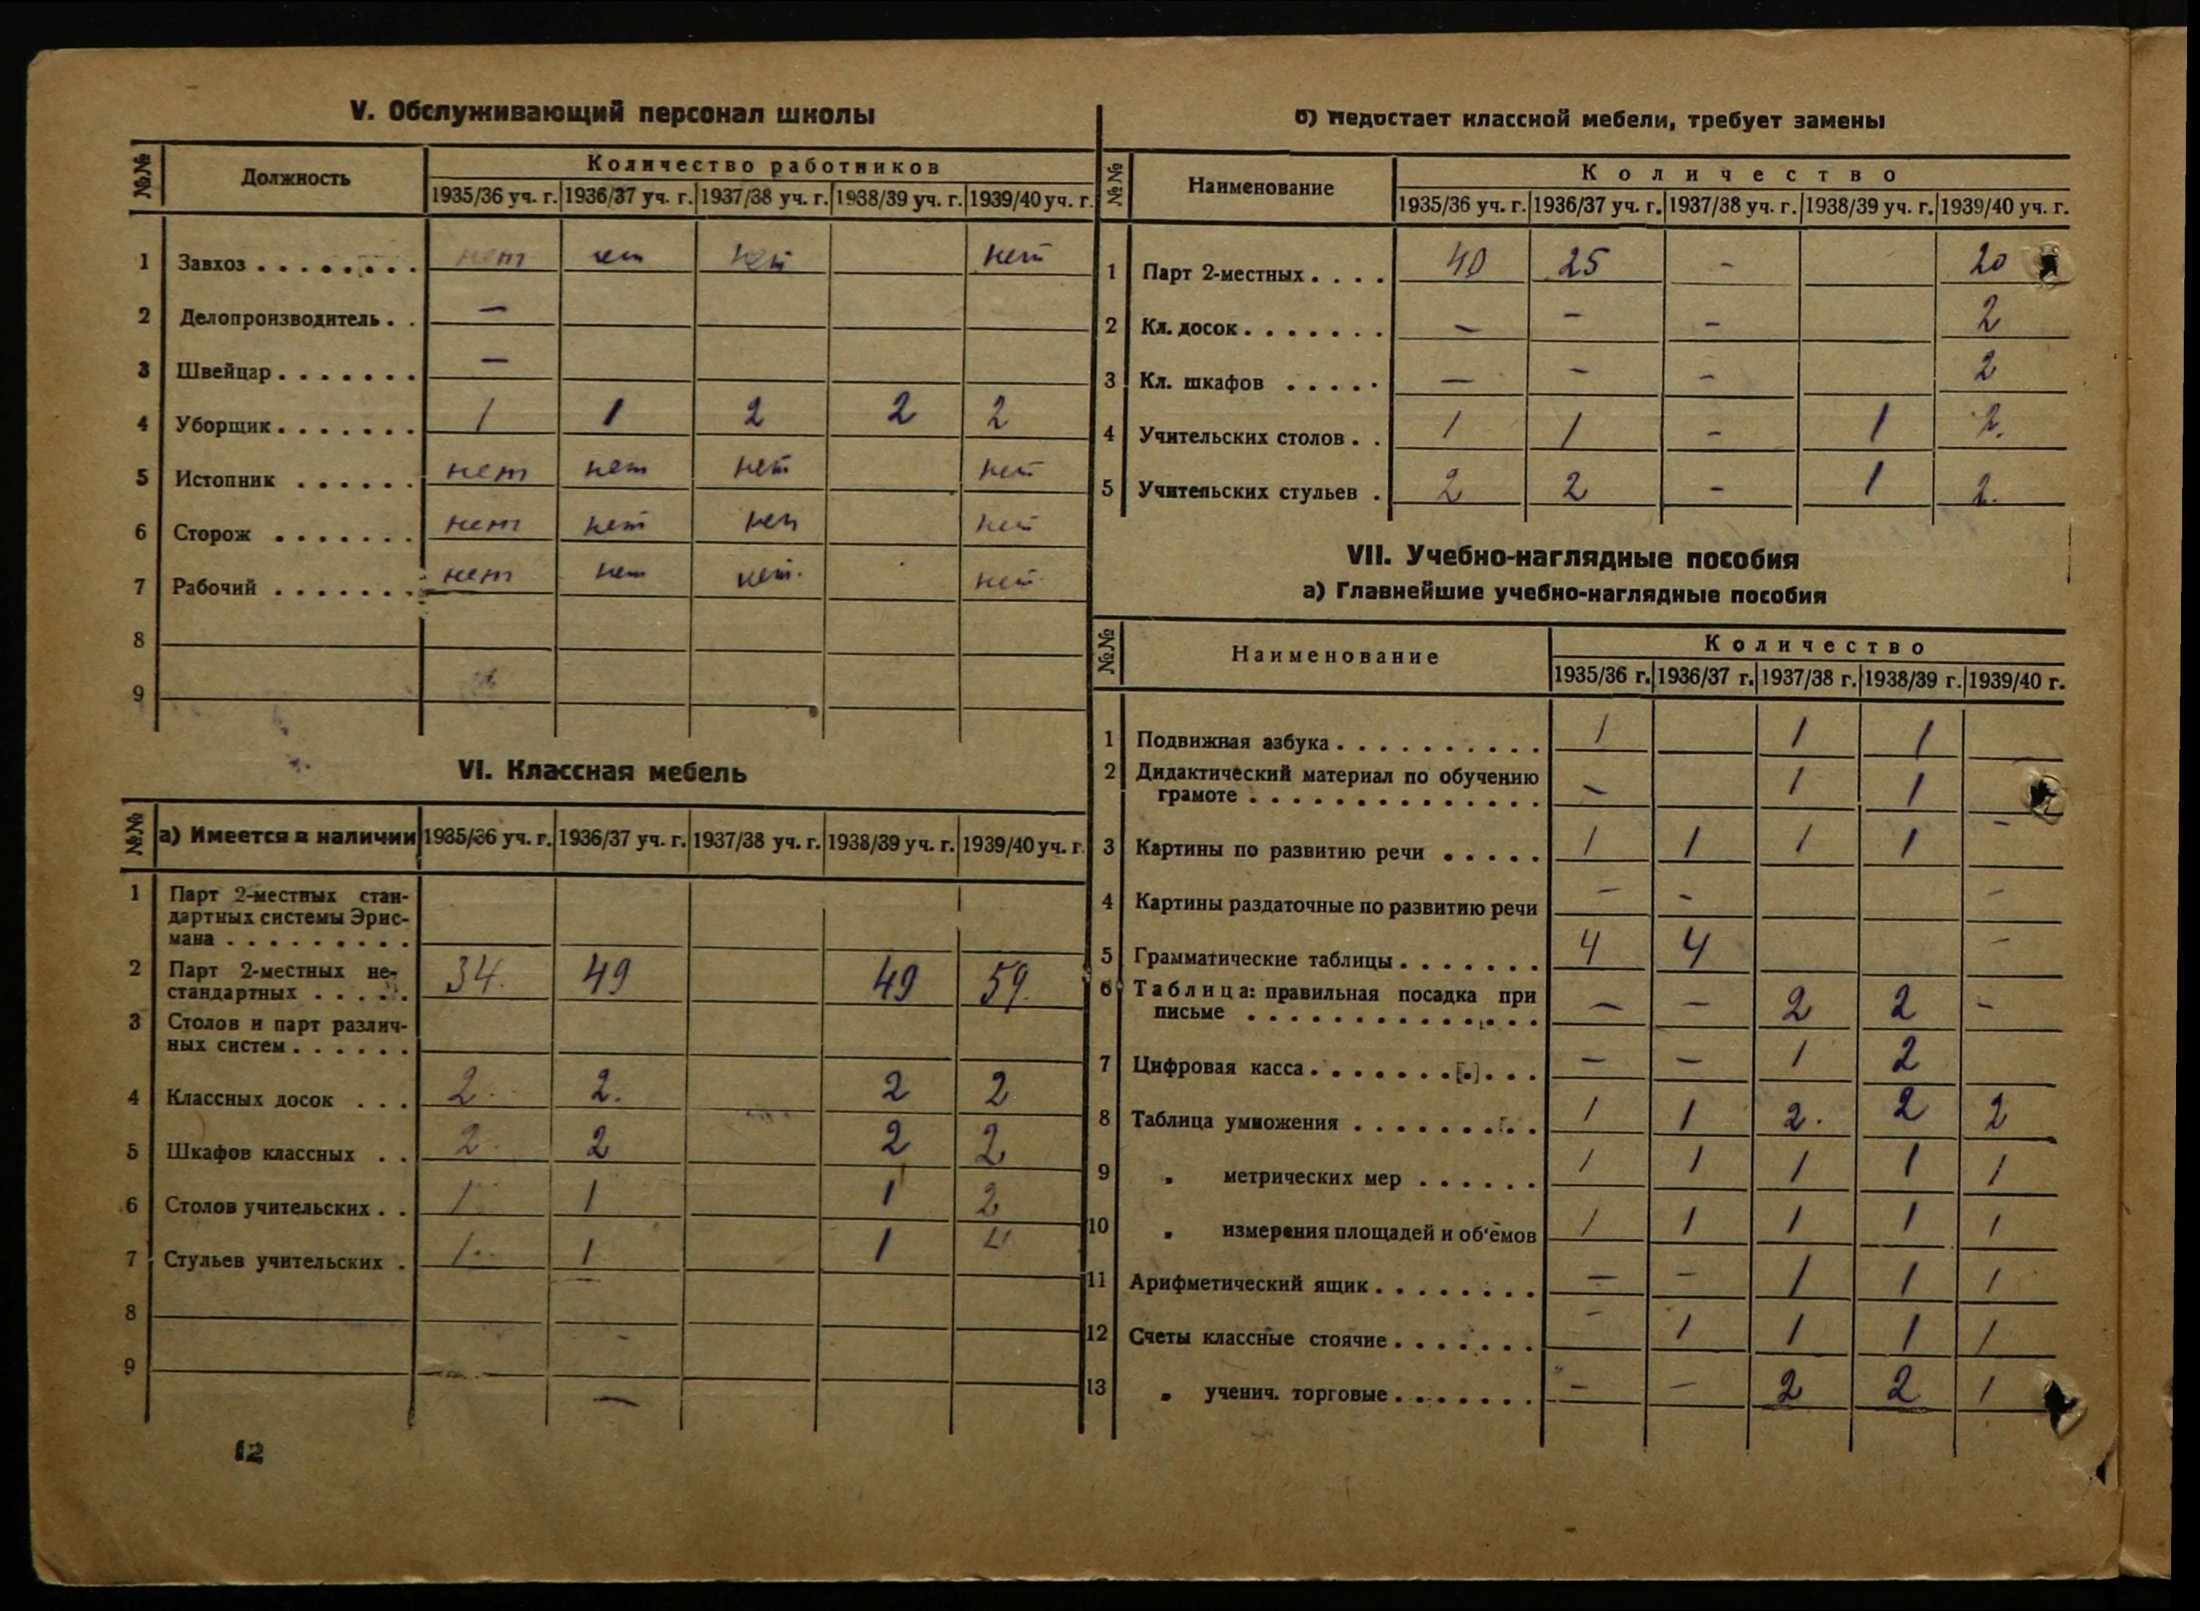 V. Обслуживающий персонал школы
№№ Должность Количество работников
1935/36 уч. г. 1936/37 уч. г. 1937/38 уч. г. 1938/39 уч. г. 1939/40 уч. г.
1 Завхоз . . . . . . . . нет нет нет нет
2 Делопроизводитель . . —
3 Швейцар . . . . . . . —
4 Уборщик . . . . . . . 1 1 2 2 2
5 Истопник . . . . . . нет нет нет нет
6 Сторож . . . . . . . нет нет нет нет
7 Рабочий . . . . . . . нет нет нет. нет
8
9
VI. Классная мебель
№№ а) Имеется в наличии 1935/36 уч. г. 1936/37 уч. г. 1937/38 уч. г. 1938/39 уч. г. 1939/40 уч. г.
1 Парт 2-местных стан-
дартных системы Эрис-
мана . . . . . . . . .
2 Парт 2-местных не-
стандартных . . . . . 34. 49 49 59.
3 Столов и парт различ-
ных систем . . . . . .
4 Классных досок . . . 2. 2. 2 2
5 Шкафов классных . . 2. 2 2 2
6 Столов учительских . . 1. 1 1 2
7 Стульев учительских . 1. 1 1 4
8
9
12
б) Недостает классной мебели, требует замены
№№ Наименование Количество
1935/36 уч. г. 1936/37 уч. г. 1937/38 уч. г. 1938/39 уч. г. 1939/40 уч. г.
1 Парт 2-местных . . . . 40 25 - 20
2 Кл. досок . . . . . . . — - - 2
3 Кл. шкафов . . . . . — - - 2
4 Учительских столов . . 1 1 - 1 2.
5 Учительских стульев . 2 2 - 1 2.
VII. Учебно-наглядные пособия
а) Главнейшие учебно-наглядные пособия
№№ Наименование Количество
1935/36 г. 1936/37 г. 1937/38 г. 1938/39 г. 1939/40 г.
1 Подвижная азбука . . . . . . . . . . 1 1 1
2 Дидактический материал по обучению
грамоте . . . . . . . . . . . . . . - 1 1
3 Картины по развитию речи . . . . . 1 1 1 1 -
4 Картины раздаточные по развитию речи - - -
5 Грамматические таблицы . . . . . . . 4 4 -
6 Таблица: правильная посадка при
письме . . . . . . . . . . . . . — — 2 2 -
7 Цифровая касса . . . . . . . [.] . . . — — 1 2
8 Таблица умножения . . . . . . . . . 1 1 2. 2 2
9 „ метрических мер . . . . . . 1 1 1 1 1
10 „ измерения площадей и об'емов 1 1 1 1 1
11 Арифметический ящик . . . . . . . . — - 1 1 1
12 Счеты классные стоячие . . . . . . . - 1 1 1 1
13 „ ученич. торговые . . . . . . . - - 2 2 1